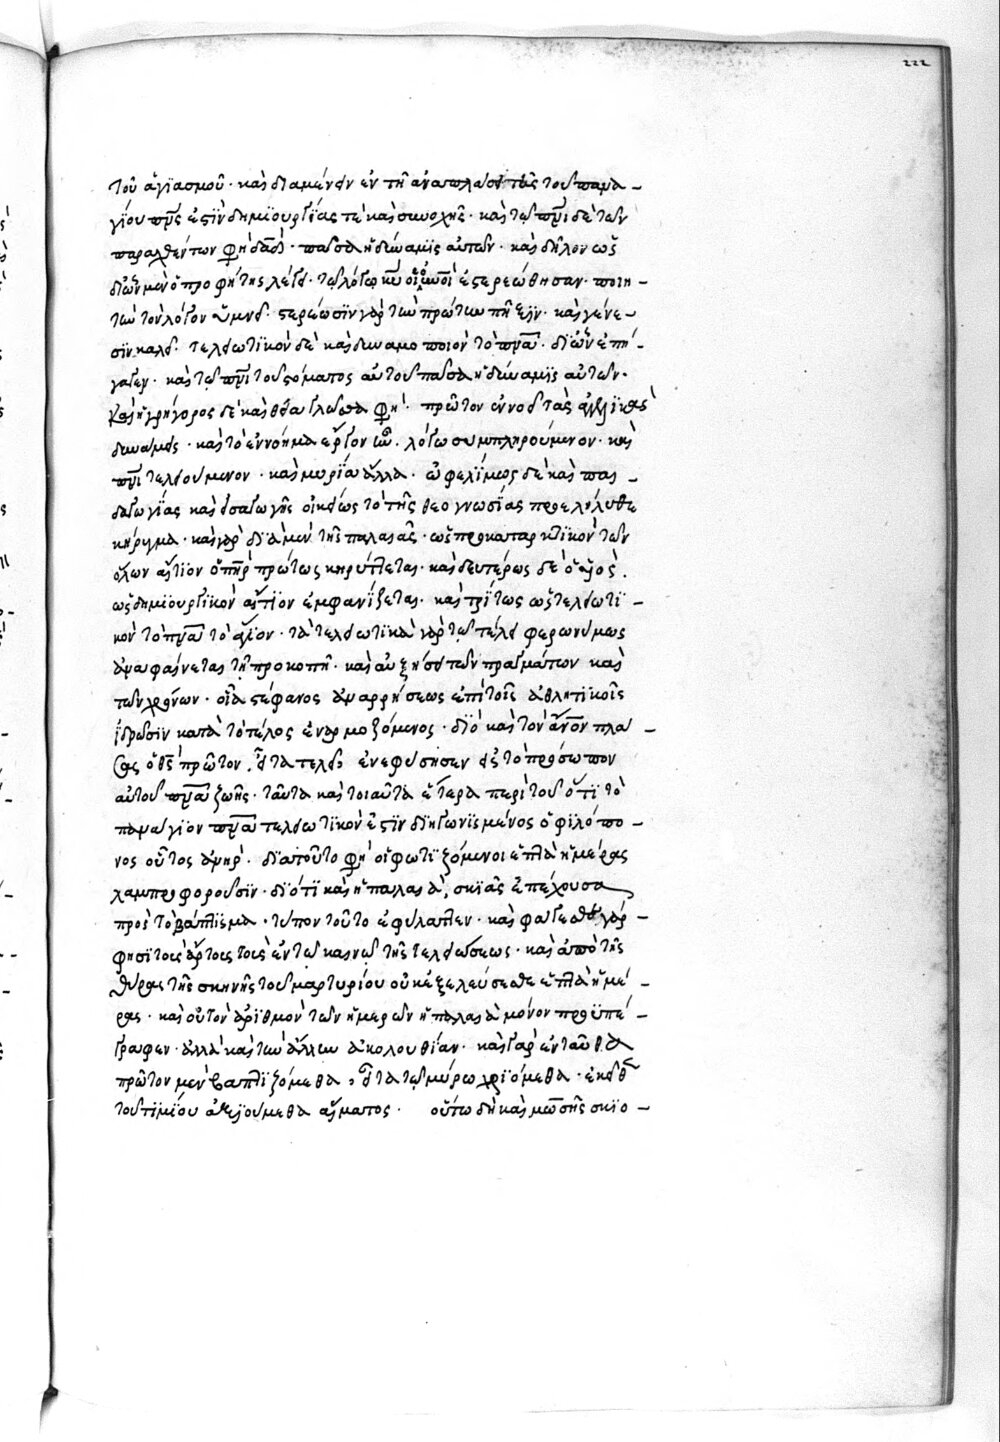 222
τοῦ ἁγιασμοῦ· καὶ διαμένειν ἐν τῇ ἀναπλάσει τῆς τοῦ παμα –
γίου πνς ἐστὶν δημιουργίας τὲ καὶ συνοχῆς· καὶ τῶ πνι δὲ τῶν
παραχθέντων φησὶ δαδ· πᾶσα ἡ δύναμις αὐτῶν· καὶ δῆλον ὡς
δι' ὧν μὲν ὁ προφήτης λέγει· τῶ λόγω κυ οἱ οὐνοὶ ἐστερεώθησαν· ποιη –
τὴν τὸν λόγον ὑμνεῖ· στερέωσιν γὰρ τὴν πρώτην πῆξιν· καὶ γένε –
σιν καλεῖ· τελειωτικὸν δὲ καὶ δυναμοποιὸν τὸ πνα· δι' ὧν ἐπή –
γαγεν· καὶ τῶ πνι τοῦ στόματος αὐτοῦ πᾶσα ἡ δύναμις αὐτῶν·
Καὶ ἡ γρηγόριος δὲ καὶ θεία γλῶσσα φησὶ· πρῶτον ἐννοεῖ τὰς ἀγγελικὰς
δυνάμεις· καὶ τὸ ἐννόημα ἔργον ἦν· λόγω συμπληρούμενον· καὶ
πνι τελειούμενον· καὶ μυρία ἄλλα· ὠφελίμως δὲ καὶ παι –
δαγωγίας καὶ εἰσαγωγῆς οἰκείως τὸ τῆς θεογνωσίας προελήλυθε
κήρυγμα· καὶ γὰρ διὰ μὲν τῆς παλαιᾶς· ὡς προκαταρκτικὸν τῶν
ὅλων αἴτιον ὁ πηρ πρώτως κηρύττεται· καὶ δευτέρως δὲ ὁ υἱὸς·
ὡς δημιουργικὸν αἴτιον ἐμφανίζεται· καὶ τρίτως ὡς τελειωτι –
κὸν τὸ πνα τὸ ἅγιον· τὰ τελειωτικὰ γὰρ τῶ τέλει φερωνύμως
ἀναφαίνεται τῇ προκοπῇ· καὶ αὐξήσει τῶν πραγμάτων καὶ
τῶν χρόνων· οἷα στέφανος ἀναρρήσεως ἐπὶ τοῖς ἀθλητικοῖς
ἱδρῶσιν κατὰ τὸ τέλος ἐναρμοζόμενος· διὸ καὶ τὸν ἀνον πλά –
σας ὁ θς πρῶτον, εἶτα τελει ἐνεφύσησεν εἰς τὸ πρόσωπον
αὐτοῦ πνα ζωῆς· ταῦτα καὶ τοιαῦτα ἕτερα περὶ τοῦ ὅτι τὸ
πανάγιον πνα τελειωτικὸν ἐστὶν διηγωνισμένος ὁ φιλόπο –
νος οὗτος ἀνὴρ· διατοῦτο φησὶ οἱ φωτιζόμενοι ἑπτὰ ἡμέρας
λαμπροφοροῦσιν· διότι καὶ ἡ παλαιὰ, σκιᾶς ἐπέχουσα
πρὸς τὸ βάπτισμα· τύπον τοῦτο ἐφύλαττεν· καὶ φάγεσθε γάρ –
φησι τοὺς ἄρτους τοὺς ἐν τῶ κανῶ τῆς τελειώσεως· καὶ ἀπὸ τῆς
θύρας τῆς σκηνῆς τοῦ μαρτυρίου οὐκ ἐξελεύσεσθε ἑπτὰ ἡμέ –
ρας· καὶ οὐ τὸν ἀριθμὸν τῶν ἡμερῶν ἡ παλαιὰ μόνον προϋπέ –
γραφεν· ἀλλὰ καὶ τὴν ἄλλην ἀκολουθίαν· καὶ γὰρ ἐνταῦθα
πρῶτον μὲν βαπτιζόμεθα, εἶτα τῶ μύρω χριόμεθα· ἐκεῖθεν
τοῦ τιμίου ἀξιούμεθα αἵματος· οὕτω δὴ καὶ μωσῆς σκιο –